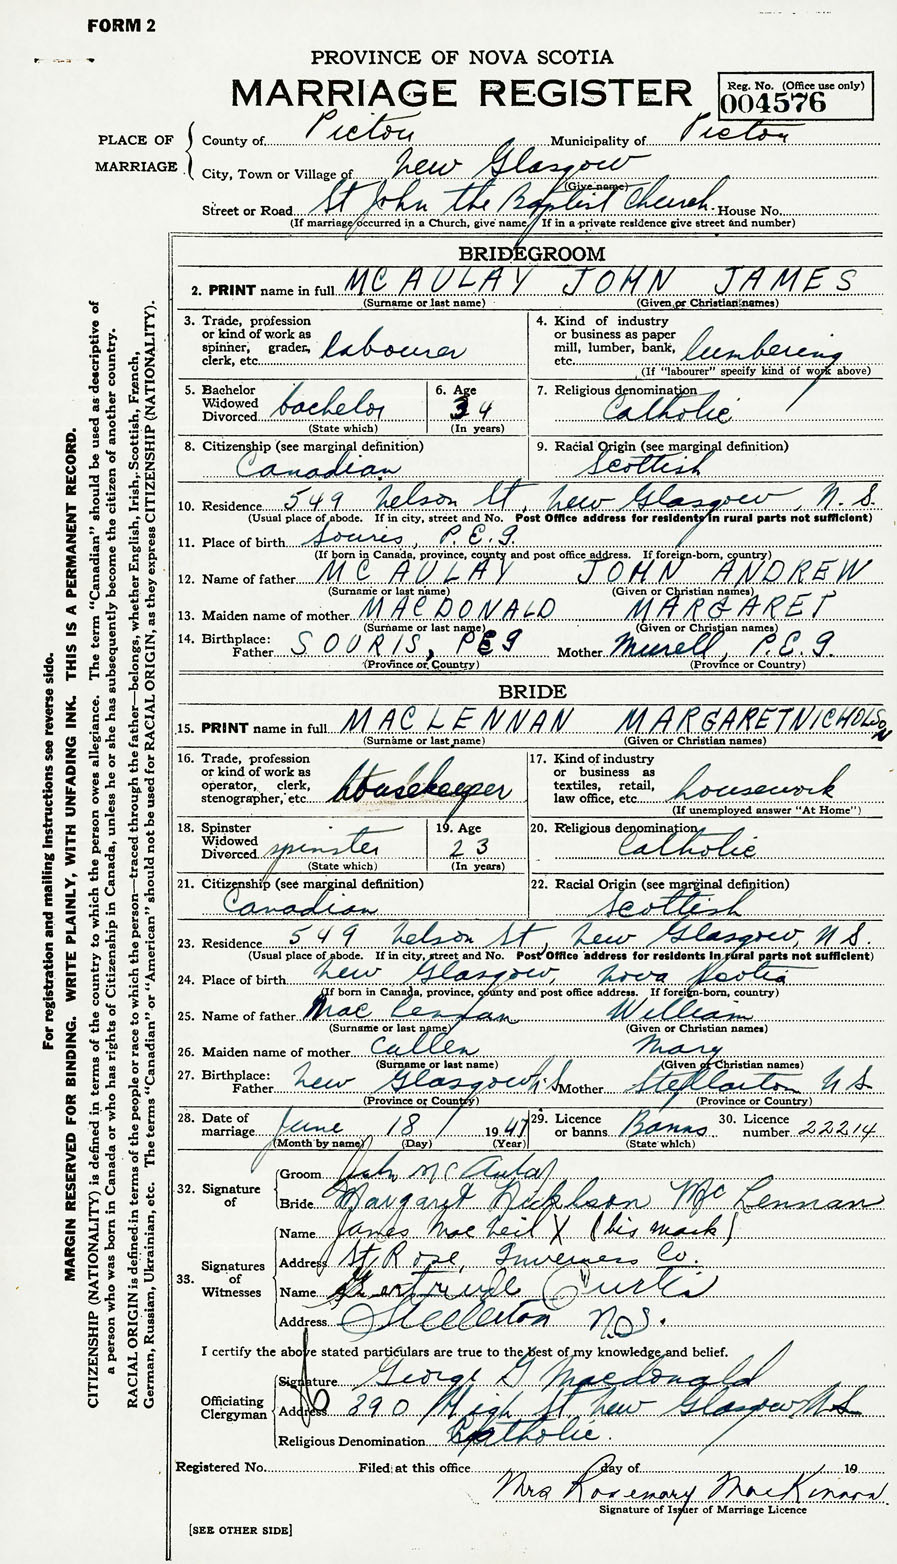 FORM 2
PROVINCE OF NOVA SCOTIA
MARRIAGE REGISTER
Reg. No. (Office use only)
004576
PLACE OF MARRIAGE
County of Pictou Municipality of Pictou
City, Town or Village of New Glasgow
(Give name)
Street or Road St John the Baptist Church. House No.
(If marriage occurred in a Church, give name. If in a private residence give street and number)
BRIDEGROOM
2. PRINT name in full MCAULAY JOHN JAMES
(Surname or last name) (Given or Christian names)
3. Trade, profession or kind of work as spinner, grader, clerk, etc. labourer
4. Kind of industry or business as paper mill, lumber, bank, etc. lumbering
(If "labourer" specify kind of work above)
5. Bachelor Widowed Divorced bachelor
(State which)
6. Age 34
(In years)
7. Religious denomination Catholic
8. Citizenship (see marginal definition) Canadian
9. Racial Origin (see marginal definition) Scottish
10. Residence 549 Nelson St, New Glasgow, N.S.
(Usual place of abode. If in city, street and No. Post Office address for residents in rural parts not sufficient)
11. Place of birth Souris, P.E.I.
(If born in Canada, province, county and post office address. If foreign-born, country)
12. Name of father MCAULAY JOHN ANDREW
(Surname or last name) (Given or Christian names)
13. Maiden name of mother MACDONALD MARGARET
(Surname or last name) (Given or Christian names)
14. Birthplace: Father SOURIS, PEI Mother P.E.I.
(Province or Country) (Province or Country)
BRIDE
15. PRINT name in full MACLENNAN MARGARET NICHOLSON
(Surname or last name) (Given or Christian names)
16. Trade, profession or kind of work as operator, clerk, stenographer, etc. housekeeper
17. Kind of industry or business as textiles, retail, law office, etc. housework
(If unemployed answer "At Home")
18. Spinster Widowed Divorced spinster
(State which)
19. Age 23
(In years)
20. Religious denomination Catholic
21. Citizenship (see marginal definition) Canadian
22. Racial Origin (see marginal definition) Scottish
23. Residence 549 Nelson St, New Glasgow, N.S.
(Usual place of abode. If in city, street and No. Post Office address for residents in rural parts not sufficient)
24. Place of birth New Glasgow, Nova Scotia
(If born in Canada, province, county and post office address. If foreign-born, country)
25. Name of father MacLennan William
(Surname or last name) (Given or Christian names)
26. Maiden name of mother Cullen Mary
(Surname or last name) (Given or Christian names)
27. Birthplace: Father New Glasgow N.S Mother Stellarton N S
(Province or Country) (Province or Country)
28. Date of marriage June 18 1947
(Month by name) (Day) (Year)
29. Licence or banns Banns
(State which)
30. Licence number 22214
32. Signature of
Groom John McAulay
Bride Margaret Nicklson McLennan
33. Signatures of Witnesses
Name James MacNeil X (his mark)
Address St Rose, Inverness Co.
Name Gertrude Curtis
Address Stellarton N.S.
I certify the above stated particulars are true to the best of my knowledge and belief.
Officiating Clergyman
Signature George G Macdonald
Address 390 High St. New Glasgow N.S
Religious Denomination Catholic.
Registered No. Filed at this office day of 19
Mrs Rosemary MacKinnon
Signature of Issuer of Marriage Licence
[SEE OTHER SIDE]
For registration and mailing instructions see reverse side.
MARGIN RESERVED FOR BINDING. WRITE PLAINLY, WITH UNFADING INK. THIS IS A PERMANENT RECORD.
CITIZENSHIP (NATIONALITY) is defined in terms of the country to which the person owes allegiance. The term "Canadian" should be used as descriptive of
a person who was born in Canada or who has rights of Citizenship in Canada, unless he or she has subsequently become the citizen of another country.
RACIAL ORIGIN is defined in terms of the people or race to which the person—traced through the father—belongs, whether English, Irish, Scottish, French,
German, Russian, Ukrainian, etc. The terms "Canadian" or "American" should not be used for RACIAL ORIGIN, as they express CITIZENSHIP (NATIONALITY).